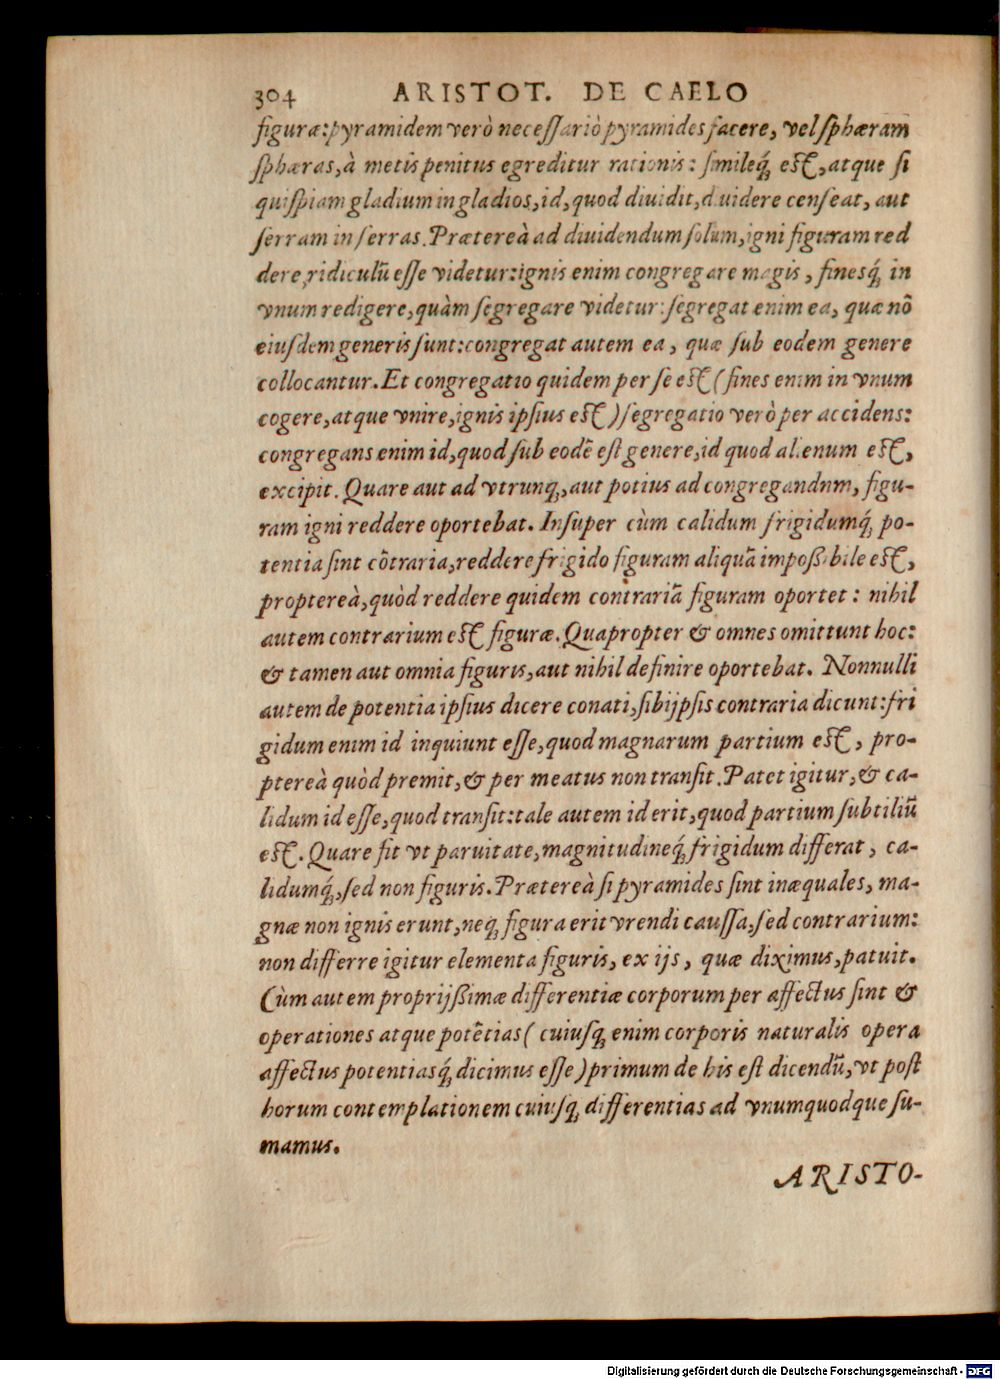 304 ARISTOT. DE CAELO
figuræ: pyramidem verò neceſſariò pyramides facere, vel ſphæram
ſphæras, à metis penitus egreditur rationis: ſimileq́; eſt, atque ſi
quiſpiam gladium in gladios, id, quod diuidit, diuidere cenſeat, aut
ſerram in ſerras. Prætereà ad diuidendum ſolùm, igni figuram red
dere, ridiculū eſſe videtur: ignis enim congregare magis, fineſq́; in
vnum redigere, quàm ſegregare videtur: ſegregat enim ea, quæ nō
eiuſdem generis ſunt: congregat autem ea, quæ ſub eodem genere
collocantur. Et congregatio quidem per ſe eſt (fines enim in vnum
cogere, atque vnire, ignis ipſius eſt) ſegregatio verò per accidens:
congregans enim id, quod ſub eodē eſt genere, id quod alienum eſt,
excipit. Quare aut ad vtrunq;, aut potius ad congregandnm, figu-
ram igni reddere oportebat. Inſuper cùm calidum frigidumq́; po-
tentia ſint cōtraria, reddere frigido figuram aliquā impoßibile eſt,
propterea, quòd reddere quidem contrariā figuram oportet: nihil
autem contrarium eſt figuræ. Quapropter & omnes omittunt hoc:
& tamen aut omnia figuris, aut nihil definire oportebat. Nonnulli
autem de potentia ipſius dicere conati, ſibijpſis contraria dicunt: fri
gidum enim id inquiunt eſſe, quod magnarum partium eſt, pro-
ptereà quòd premit, & per meatus non tranſit. Patet igitur, & ca-
lidum id eſſe, quod tranſit: tale autem id erit, quod partium ſubtiliū
eſt. Quare fit vt paruitate, magnitudineq́; frigidum differat, ca-
lidumq́;, ſed non figuris. Prætereà ſi pyramides ſint inæquales, ma-
gnæ non ignis erunt, neq; figura erit vrendi cauſſa, ſed contrarium:
non differre igitur elementa figuris, ex ijs, quæ diximus, patuit.
Cùm autem proprijßimæ differentiæ corporum per affectus ſint &
operationes atque potētias (cuiuſq; enim corporis naturalis opera
affectus potentiasq́; dicimus eſſe) primum de his eſt dicendū, vt poſt
horum contemplationem cuiuſq; differentias ad vnumquodque ſu-
mamus.
ARISTO-
Digitalisierung gefördert durch die Deutsche Forschungsgemeinschaft - DFG